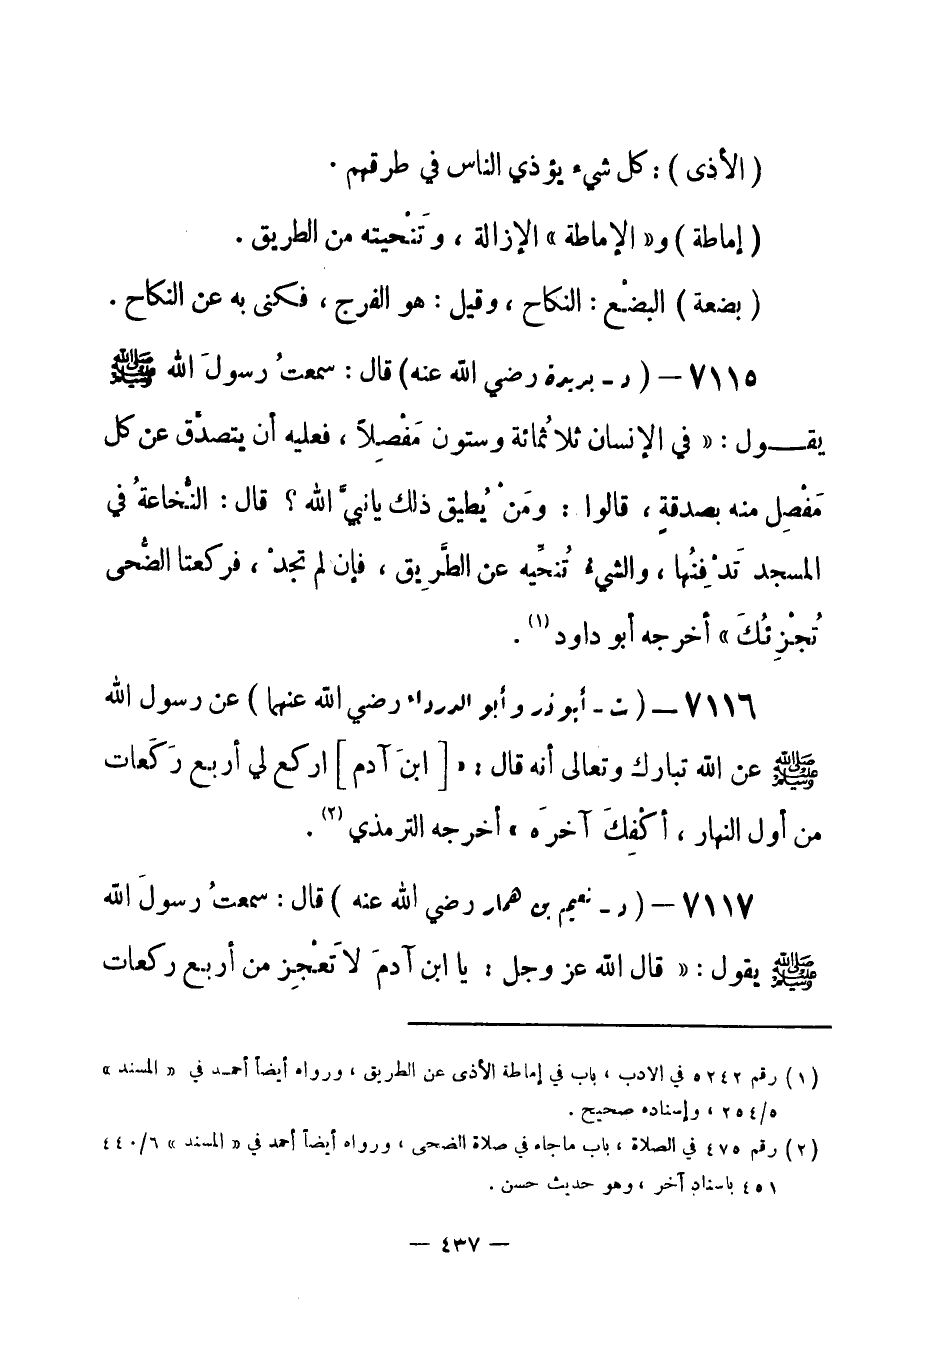 ( الأذى ) : كل شيء يؤذي الناس في طرقهم .
( إماطة ) و« الإماطة » الإزالة ، وتَنْحيته من الطريق .
( بضعة ) البضْع : النكاح ، وقيل : هو الفرج ، فكنى به عن النكاح .
٧١١٥ – ( د - بريدة رضي الله عنه ) قال : سمعتُ رسولَ الله ﷺ
يقـــول : « في الإنسان ثلاثُمائة وستون مَفْصِلاً ، فعليه أن يتصدَّق عن كل
مَفْصِلٍ منه بصدقةٍ ، قالوا : ومَنْ يُطيق ذلك يانبيَّ الله ؟ قال : النُّخاعةُ في
المسجد تَدْفِنُها ، والشيءُ تُنحِّيه عن الطَّرِيق ، فإن لم تجدْ ، فركعتا الضُّحى
تُجْزِئُكَ » أخرجه أبو داود (١) .
٧١١٦ – ( ت - أبو ذر وأبو الدرداء رضي الله عنهما ) عن رسول الله
ﷺ عن الله تبارك وتعالى أنه قال : « [ ابنَ آدم ] اركع لي أربع رَكَعات
من أول النهار ، أكْفِكَ آخرَه » أخرجه الترمذي (٢) .
٧١١٧ – ( د - نعيم بن همار رضي الله عنه ) قال : سمعتُ رسولَ الله
ﷺ يقول : « قال الله عز وجل : يا ابن آدمَ لا تَعْجِز من أربع ركعات
(١) رقم ٥٢٤٢ في الادب ، باب في إماطة الأذى عن الطريق ، ورواه أيضاً أحمد في « المسند »
٢٥٤/٥ ، وإسناده صحيح .
(٢) رقم ٤٧٥ في الصلاة ، باب ماجاء في صلاة الضحى ، ورواه أيضاً أحمد في « المسند » ٤٤٠/٦
٤٥١ باسناد آخر ، وهو حديث حسن .
— ٤٣٧ —